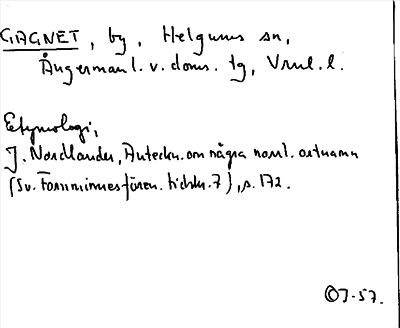 GAGNET, by, Helgums sn,
Ångermanl. v. doms. tg, Vnrl. l.
Etymologi,
J. Nordlander, Anteckn. om några norrl. ortnamn
(Sv. Fornminnesfören. tidskr. 7), s. 172.
OJ-57.